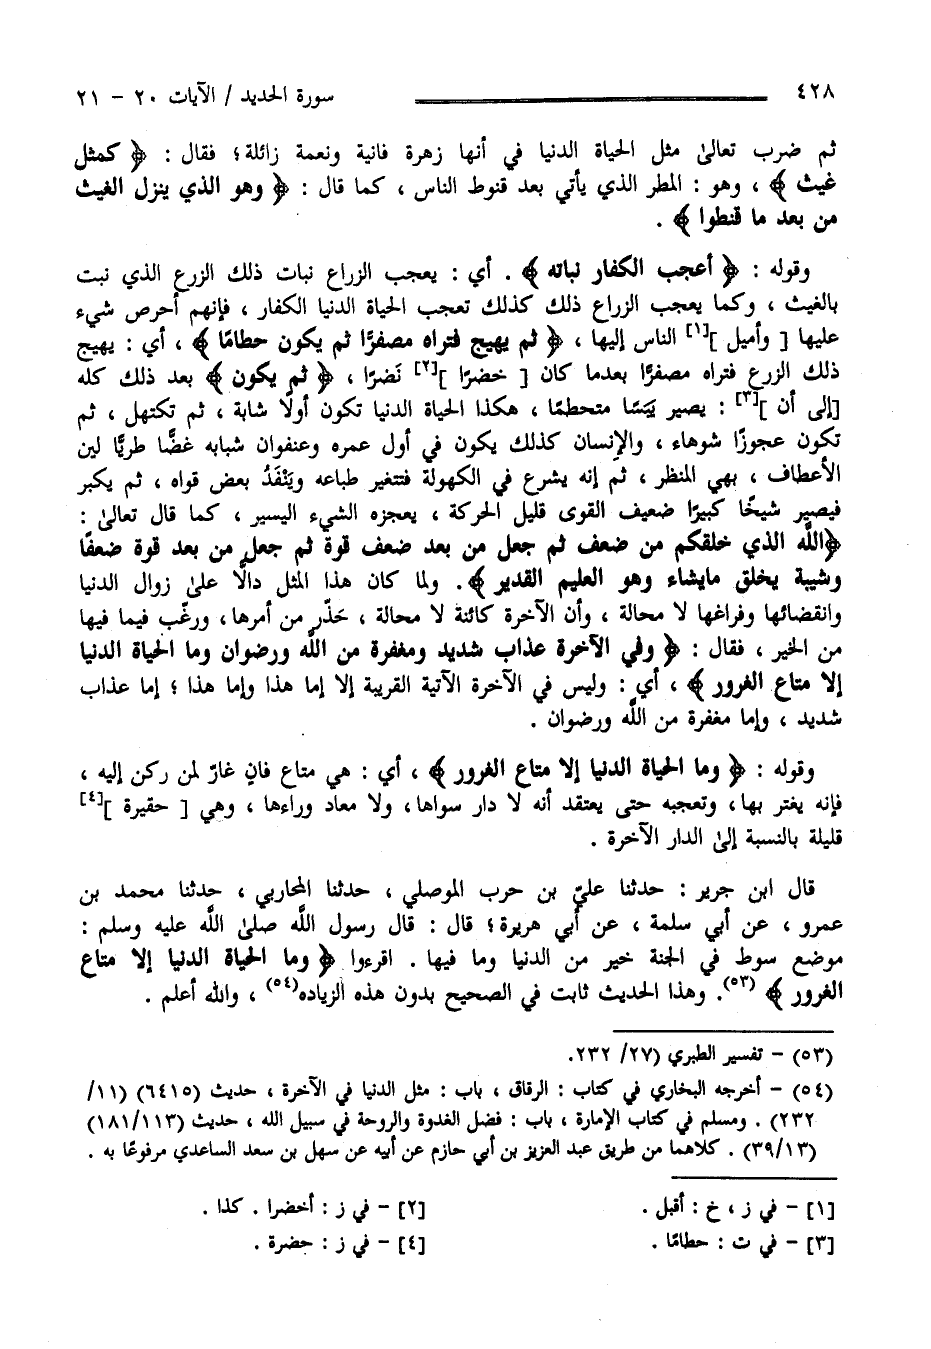 ٤٢٨ سورة الحديد / الآيات ٢٠ - ٢١
ثم ضرب تعالىٰ مثل الحياة الدنيا في أنها زهرة فانية ونعمة زائلة؛ فقال : ﴿ كمثل
غيث ﴾ ، وهو : المطر الذي يأتي بعد قنوط الناس ، كما قال : ﴿ وهو الذي ينزل الغيث
من بعد ما قنطوا ﴾ .
وقوله : ﴿ أعجب الكفار نباته ﴾ . أي : يعجب الزراع نبات ذلك الزرع الذي نبت
بالغيث ، وكما يعجب الزراع ذلك كذلك تعجب الحياة الدنيا الكفار ، فإنهم أحرص شيء
عليها [ وأميل ][١] الناس إليها ، ﴿ ثم يهيج فتراه مصفرًا ثم يكون حطامًا ﴾ ، أي : يهيج
ذلك الزرع فتراه مصفرًا بعدما كان [ خضرًا ][٢] نَضرًا ، ﴿ ثم يكون ﴾ بعد ذلك كله
[إلى أن ][٣] : يصير يَبَسًا متحطمًا ، هكذا الحياة الدنيا تكون أولًا شابة ، ثم تكتهل ، ثم
تكون عجوزًا شوهاء ، والإنسان كذلك يكون في أول عمره وعنفوان شبابه غضًّا طريًّا لين
الأعطاف ، بهي المنظر ، ثم إنه يشرع في الكهولة فتتغير طباعه ويَنْفَدُ بعض قواه ، ثم يكبر
فيصير شيخًا كبيرًا ضعيف القوى قليل الحركة ، يعجزه الشيء اليسير ، كما قال تعالىٰ :
﴿اللَّه الذي خلقكم من ضعف ثم جعل من بعد ضعف قوة ثم جعل من بعد قوة ضعفًا
وشيبة يخلق مايشاء وهو العليم القدير ﴾. ولما كان هذا المثل دالًا علىٰ زوال الدنيا
وانقضائها وفراغها لا محالة ، وأن الآخرة كائنة لا محالة ، حَذّر من أمرها، ورغّب فيما فيها
من الخير ، فقال : ﴿ وفي الآخرة عذاب شديد ومغفرة من اللَّه ورضوان وما الحياة الدنيا
إلا متاع الغرور ﴾ ، أي : وليس في الآخرة الآتية القريبة إلا إما هذا وإما هذا ؛ إما عذاب
شديد ، وإما مغفرة من اللَّه ورضوان .
وقوله : ﴿ وما الحياة الدنيا إلا متاع الغرور ﴾ ، أي : هي متاع فانٍ غارّ لمن ركن إليه ،
فإنه يغتر بها، وتعجبه حتى يعتقد أنه لا دار سواها، ولا معاد وراءها ، وهي [ حقيرة ][٤]
قليلة بالنسبة إلىٰ الدار الآخرة .
قال ابن جرير : حدثنا عليّ بن حرب الموصلي ، حدثنا المحاربي ، حدثنا محمد بن
عمرو ، عن أبي سلمة ، عن أبي هريرة؛ قال : قال رسول اللَّه صلىٰ اللَّه عليه وسلم :
موضع سوط في الجنة خير من الدنيا وما فيها . اقرءوا ﴿ وما الحياة الدنيا إلا متاع
الغرور ﴾ (٥٣). وهذا الحديث ثابت في الصحيح بدون هذه الزياده(٥٤) ، والله أعلم .
(٥٣) - تفسير الطبري (٢٧/ ٢٣٢.
(٥٤) - أخرجه البخاري في كتاب : الرقاق ، باب : مثل الدنيا في الآخرة ، حديث (٦٤١٥) (١١/
٢٣٢) . ومسلم في كتاب الإمارة ، باب : فضل الغدوة والروحة في سبيل الله ، حديث (١٨١/١١٣)
(٣٩/١٣) . كلاهما من طريق عبد العزيز بن أبي حازم عن أبيه عن سهل بن سعد الساعدي مرفوعًا به .
[١] - في ز ، خ : أقبل . [٢] - في ز : أخضرا . كذا .
[٣] - في ت : حطامًا . [٤] - في ز : حضرة .